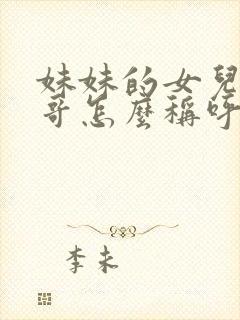 妹妹的女兒
哥怎麼稱呼
李未